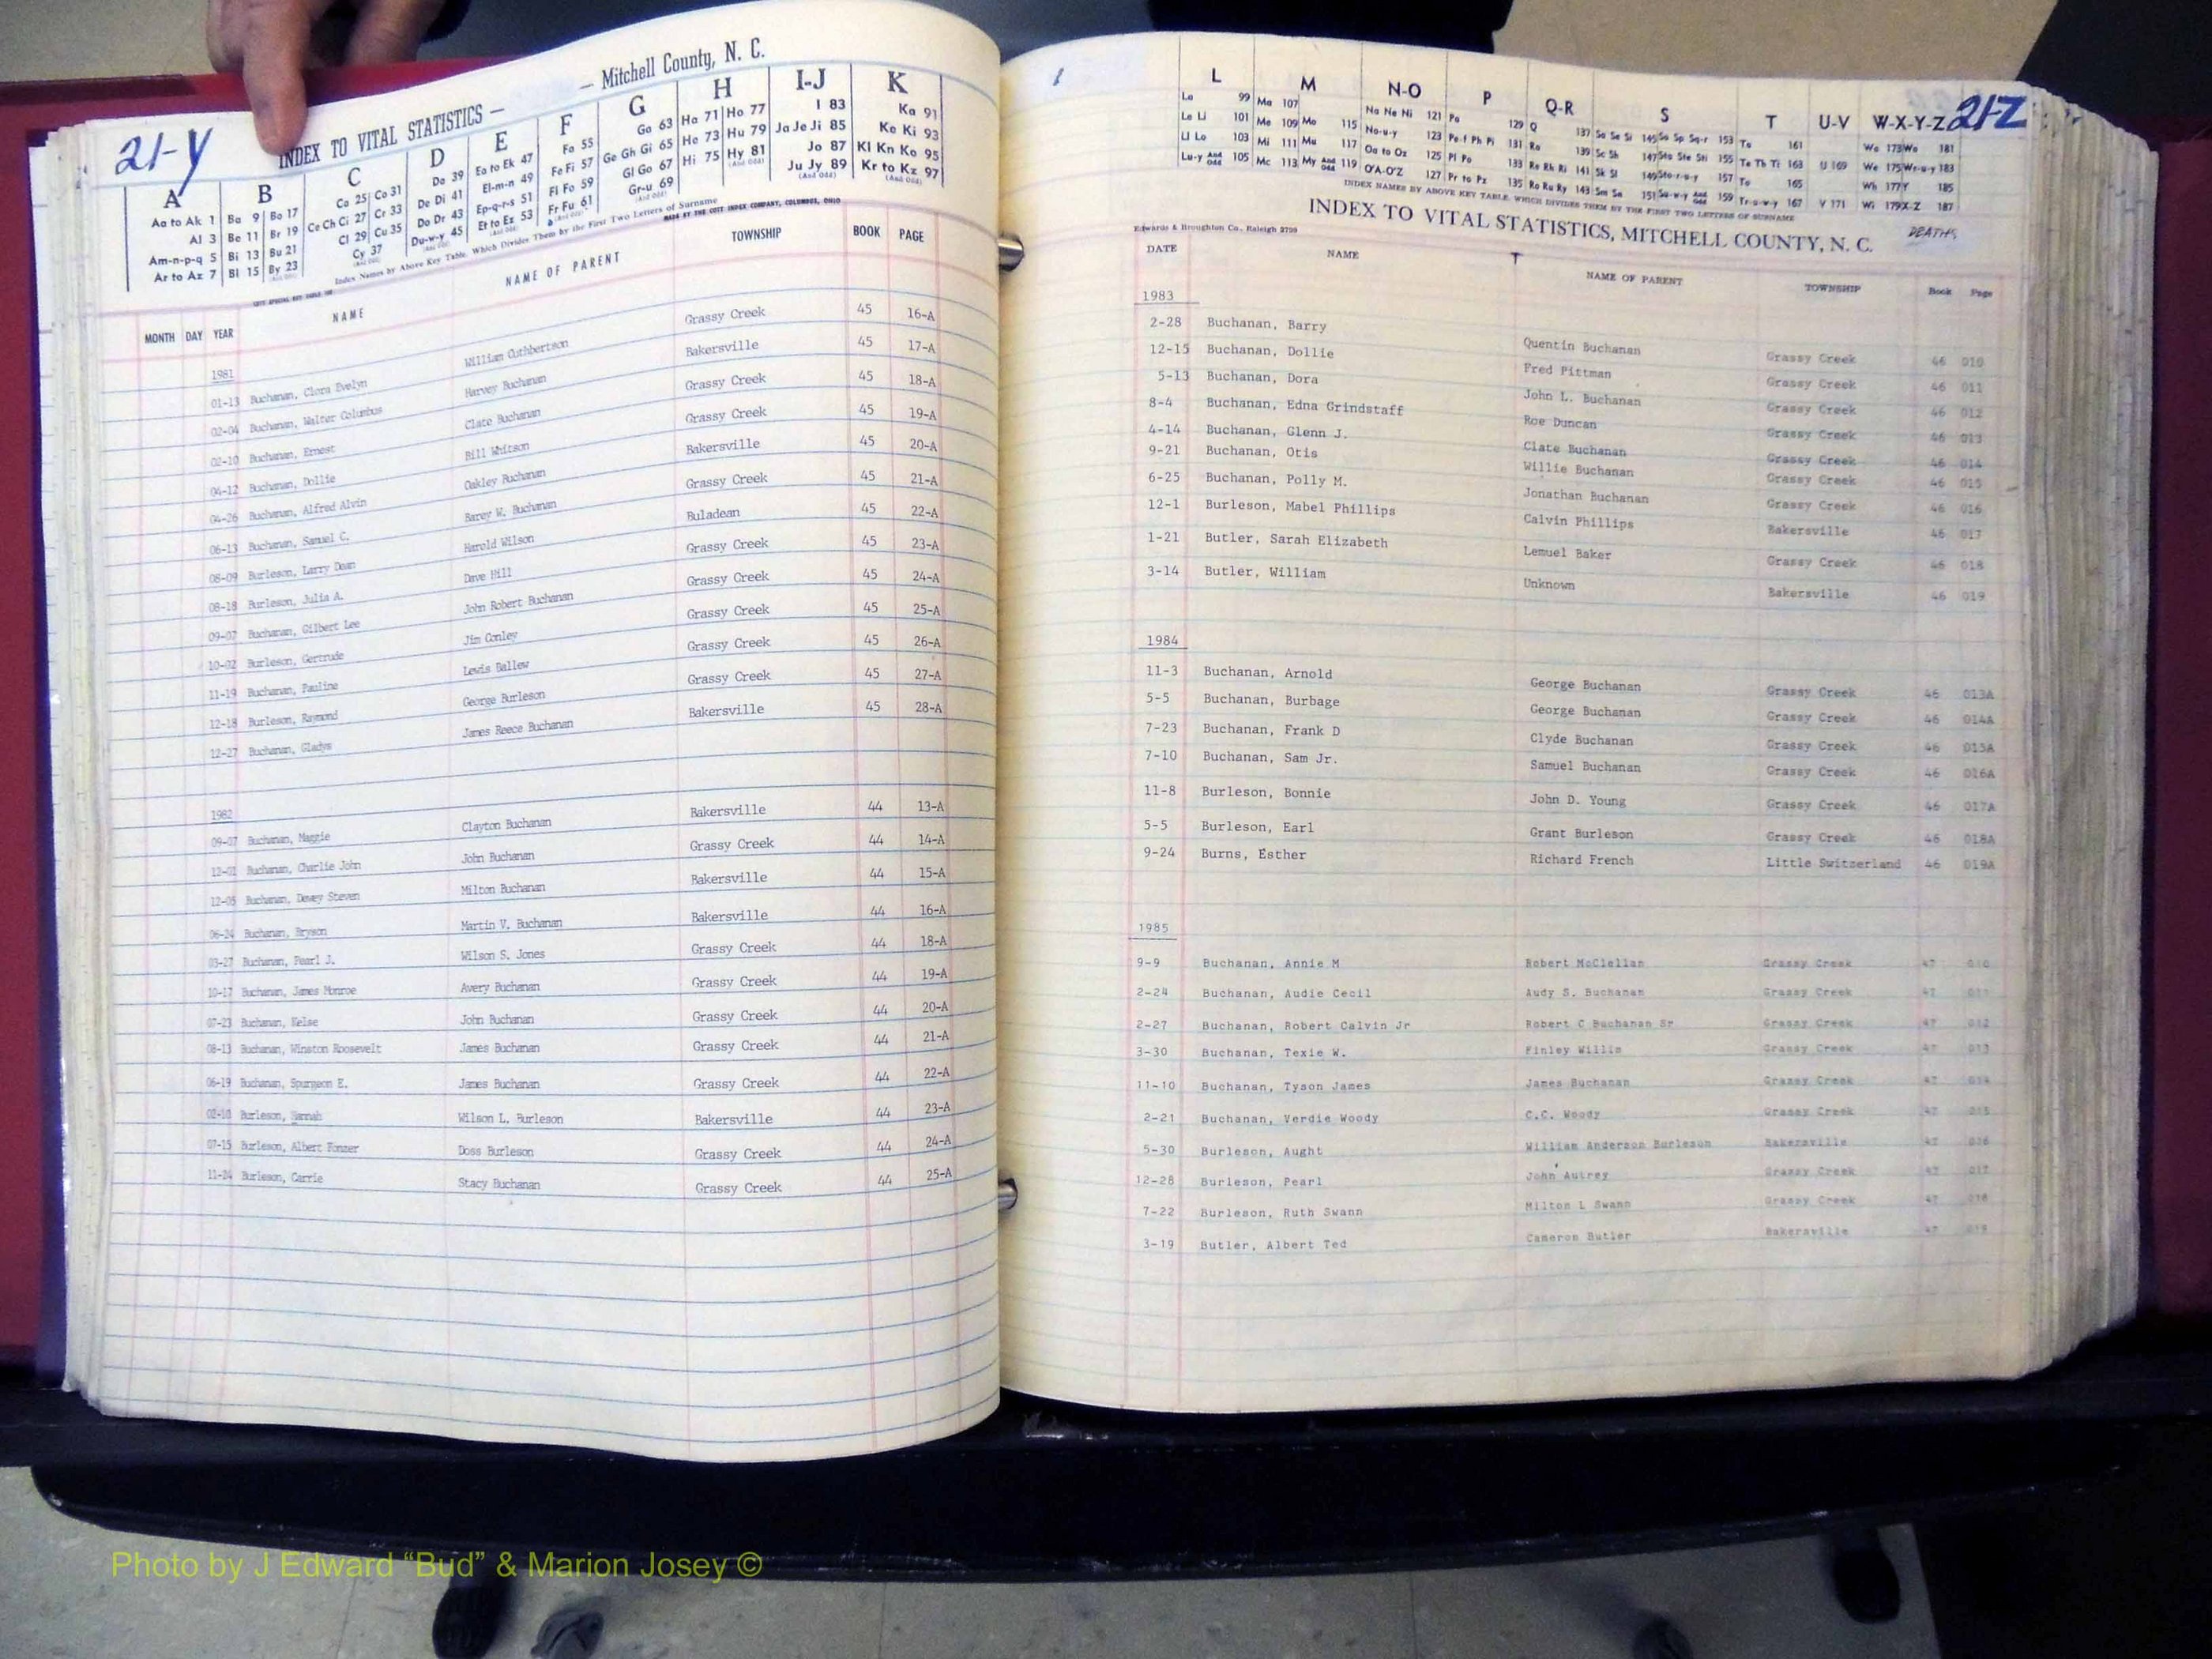 21-Y
INDEX TO VITAL STATISTICS — — Mitchell County, N. C.
A B C D E F G H I-J K
Aa to Ak 1 Ba 9 Bo 17 Ca 25 Co 31 Da 39 Ea to Ek 47 Fa 55 Ga 63 Ha 71 Ho 77 I 83 Ka 91
Al 3 Be 11 Br 19 Ce Ch Ci 27 Cr 33 De Di 41 El-m-n 49 Fe Fi 57 Ge Gh Gi 65 He 73 Hu 79 Ja Je Ji 85 Ke Ki 93
Am-n-p-q 5 Bi 13 Bu 21 Cl 29 Cu 35 Do Dr 43 Ep-q-r-s 51 Fl Fo 59 Gl Go 67 Hi 75 Hy 81 Jo 87 Kl Kn Ko 95
Ar to Az 7 Bl 15 By 23 Cy 37 Du-w-y 45 Et to Ez 53 Fr Fu 61 Gr-u 69 Ju Jy 89 Kr to Kz 97
Index Names by Above Key Table, Which Divides Them by the First Two Letters of Surname
MADE BY THE COTT INDEX COMPANY, COLUMBUS, OHIO
MONTH DAY YEAR NAME NAME OF PARENT TOWNSHIP BOOK PAGE
1981
01-13 Buchanan, Clora Evelyn William Cuthbertson Grassy Creek 45 16-A
02-04 Buchanan, Walter Columbus Harvey Buchanan Bakersville 45 17-A
02-10 Buchanan, Ernest Clate Buchanan Grassy Creek 45 18-A
04-12 Buchanan, Dollie Bill Whitson Grassy Creek 45 19-A
04-26 Buchanan, Alfred Alvin Oakley Buchanan Bakersville 45 20-A
06-13 Buchanan, Samuel C. Barey W. Buchanan Grassy Creek 45 21-A
08-09 Burleson, Larry Dean Harold Wilson Buladean 45 22-A
08-18 Burleson, Julia A. Dave Hill Grassy Creek 45 23-A
09-07 Buchanan, Gilbert Lee John Robert Buchanan Grassy Creek 45 24-A
10-02 Burleson, Gertrude Jim Conley Grassy Creek 45 25-A
11-19 Buchanan, Pauline Lewis Ballew Grassy Creek 45 26-A
12-18 Burleson, Raymond George Burleson Grassy Creek 45 27-A
12-27 Buchanan, Gladys James Reece Buchanan Bakersville 45 28-A
1982
09-07 Buchanan, Maggie Clayton Buchanan Bakersville 44 13-A
12-02 Buchanan, Charlie John John Buchanan Grassy Creek 44 14-A
12-05 Buchanan, Dewey Steven Milton Buchanan Bakersville 44 15-A
06-24 Buchanan, Bryson Martin V. Buchanan Bakersville 44 16-A
03-27 Buchanan, Pearl J. Wilson S. Jones Grassy Creek 44 18-A
10-17 Buchanan, James Monroe Avery Buchanan Grassy Creek 44 19-A
07-23 Buchanan, Kelse John Buchanan Grassy Creek 44 20-A
08-13 Buchanan, Winston Roosevelt James Buchanan Grassy Creek 44 21-A
06-19 Buchanan, Spurgeon E. James Buchanan Grassy Creek 44 22-A
02-10 Burleson, Hannah Wilson L. Burleson Bakersville 44 23-A
07-15 Burleson, Albert Fonzer Doss Burleson Grassy Creek 44 24-A
11-24 Burleson, Carrie Stacy Buchanan Grassy Creek 44 25-A
21-Z
L M N-O P Q-R S T U-V W-X-Y-Z
La 99 Ma 107 Na Ne Ni 121 Pa 129 Q 137 Sa Se Si 145 So Sp Sq-r 153 Ta 161 Wa 173 Wo 181
Le Li 101 Me 109 Mo 115 No-u-y 123 Pe-f Ph Pi 131 Ra 139 Sc Sh 147 Sta Ste Sti 155 Te Th Ti 163 U 169 We 175 Wr-u-y 183
Ll Lo 103 Mi 111 Mu 117 Oa to Oz 125 Pl Po 133 Re Rh Ri 141 Sk Sl 149 Sto-r-u-y 157 To 165 Wh 177 Y 185
Lu-y And Odd 105 Mc 113 My And Odd 119 O'A-O'Z 127 Pr to Pz 135 Ro Ru Ry 143 Sm Sn 151 Su-w-y And Odd 159 Tr-u-w-y 167 V 171 Wi 179 X-Z 187
INDEX NAMES BY ABOVE KEY TABLE, WHICH DIVIDES THEM BY THE FIRST TWO LETTERS OF SURNAME
Edwards & Broughton Co., Raleigh 2799
INDEX TO VITAL STATISTICS, MITCHELL COUNTY, N. C. DEATHS
DATE NAME NAME OF PARENT TOWNSHIP Book Page
1983
2-28 Buchanan, Barry Quentin Buchanan Grassy Creek 46 010
12-15 Buchanan, Dollie Fred Pittman Grassy Creek 46 011
5-13 Buchanan, Dora John L. Buchanan Grassy Creek 46 012
8-4 Buchanan, Edna Grindstaff Roe Duncan Grassy Creek 46 013
4-14 Buchanan, Glenn J. Clate Buchanan Grassy Creek 46 014
9-21 Buchanan, Otis Willie Buchanan Grassy Creek 46 015
6-25 Buchanan, Polly M. Jonathan Buchanan Grassy Creek 46 016
12-1 Burleson, Mabel Phillips Calvin Phillips Bakersville 46 017
1-21 Butler, Sarah Elizabeth Lemuel Baker Grassy Creek 46 018
3-14 Butler, William Unknown Bakersville 46 019
1984
11-3 Buchanan, Arnold George Buchanan Grassy Creek 46 013A
5-5 Buchanan, Burbage George Buchanan Grassy Creek 46 014A
7-23 Buchanan, Frank D Clyde Buchanan Grassy Creek 46 015A
7-10 Buchanan, Sam Jr. Samuel Buchanan Grassy Creek 46 016A
11-8 Burleson, Bonnie John D. Young Grassy Creek 46 017A
5-5 Burleson, Earl Grant Burleson Grassy Creek 46 018A
9-24 Burns, Esther Richard French Little Switzerland 46 019A
1985
9-9 Buchanan, Annie M Robert McClellan Grassy Creek 47 010
2-24 Buchanan, Audie Cecil Audy S. Buchanan Grassy Creek 47 011
2-27 Buchanan, Robert Calvin Jr Robert C Buchanan Sr Grassy Creek 47 012
3-30 Buchanan, Texie W. Finley Willis Grassy Creek 47 013
11-10 Buchanan, Tyson James James Buchanan Grassy Creek 47 014
2-21 Buchanan, Verdie Woody C.C. Woody Grassy Creek 47 015
5-30 Burleson, Aught William Anderson Burleson Bakersville 47 016
12-28 Burleson, Pearl John Autrey Grassy Creek 47 017
7-22 Burleson, Ruth Swann Milton L Swann Grassy Creek 47 018
3-19 Butler, Albert Ted Cameron Butler Bakersville 47 019
Photo by J Edward “Bud” & Marion Josey ©